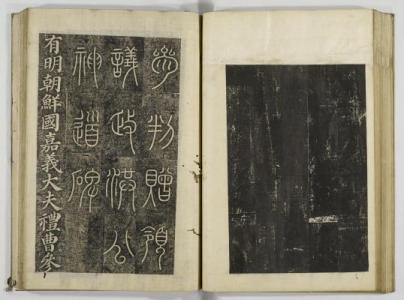 參判贈領
議政洪公
神道碑
有明朝鮮國嘉義大夫禮曹參